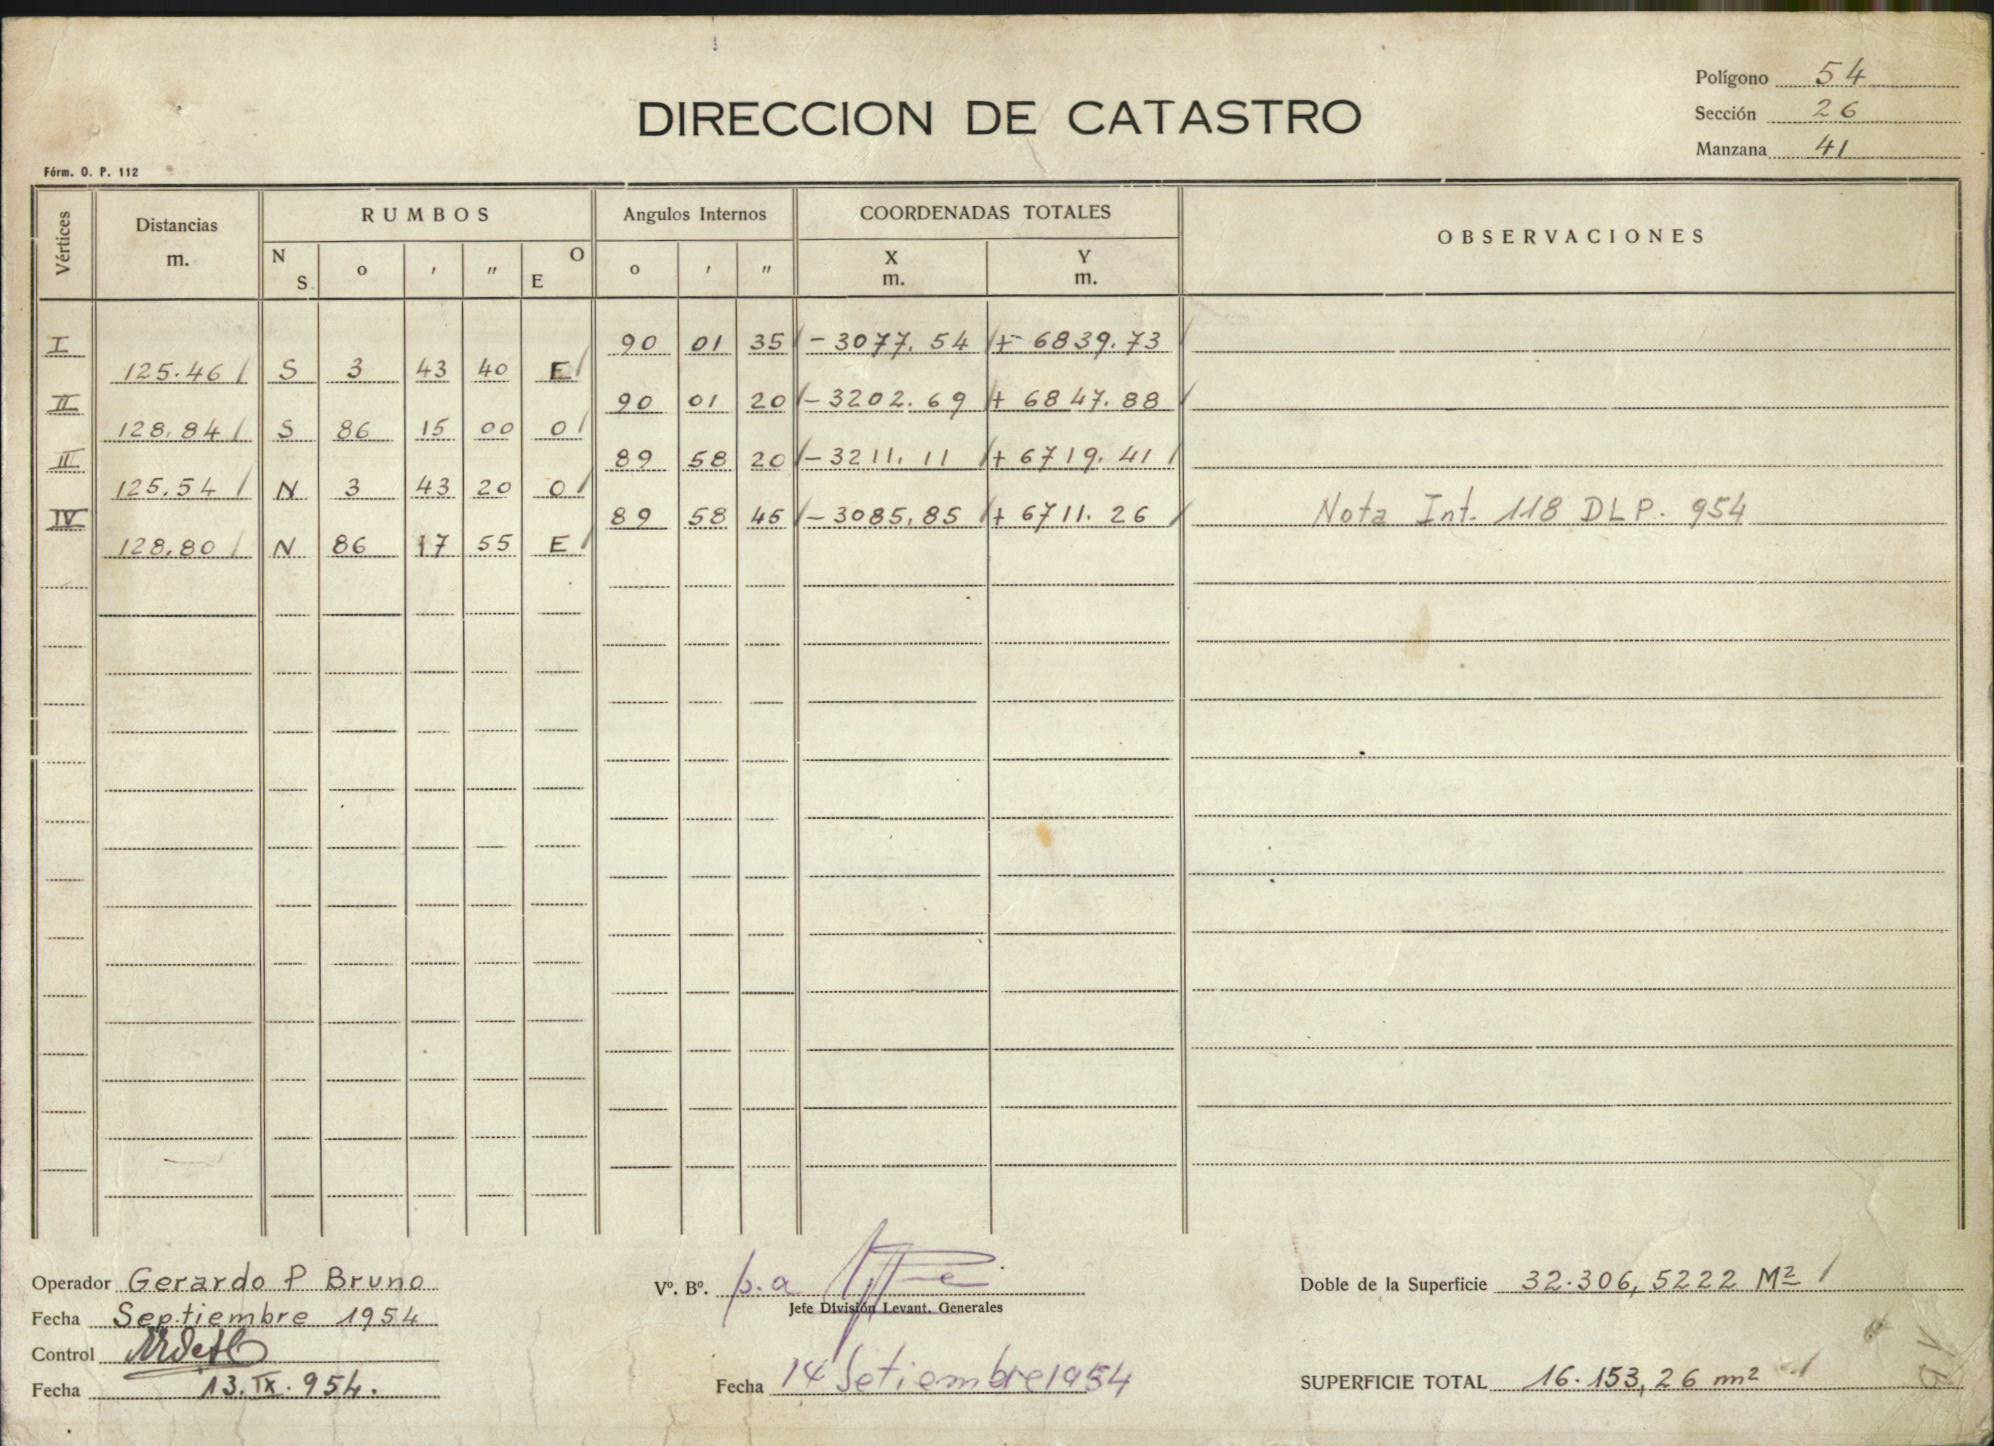 Polígono 54
DIRECCION DE CATASTRO
Sección 26
Manzana 41
Fórm. O. P. 112
Vértices Distancias m. RUMBOS Angulos Internos COORDENADAS TOTALES OBSERVACIONES
N S ° ′ ″ O E ° ′ ″ X m. Y m.
I 90 01 35 - 3077.54 + 6839.73
125.46 S 3 43 40 E
II 90 01 20 - 3202.69 + 6847.88
128,84 S 86 15 00 O
III 89 58 20 - 3211.11 + 6719.41
125.54 N 3 43 20 O
IV 89 58 45 - 3085,85 + 6711.26 Nota Int. 118 DLP. 954
128,80 N 86 17 55 E
Operador Gerardo P Bruno
Fecha Septiembre 1954
Control
Fecha 13.IX.954.
Vº. Bº. p.a
Jefe División Levant. Generales
Fecha 14 Setiembre 1954
Doble de la Superficie 32.306,5222 M2
SUPERFICIE TOTAL 16.153,26 m2